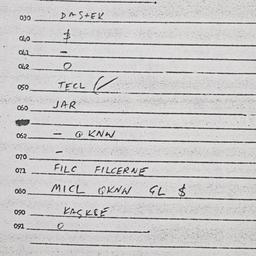 030 DASTEK
040 $
041 -
042 0
050 TECL
060 JAR
062 - @ KNW
070 -
071 FILC FILCERNE
080 MICL @KNN GL $
090 KACKBE
091 0